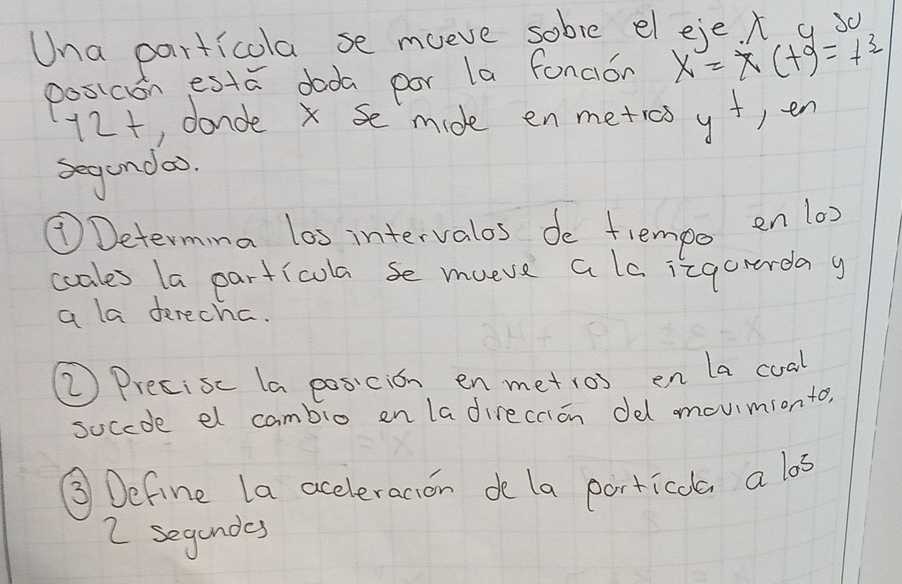 Una partícula se mueve sobre el eje X y su
posición está dada por la función X = X (t) = t³
-12t, donde x se mide en metros y t, en
segundos.
① Determina los intervalos de tiempo en los
cuales la partícula se mueve a la izquierda y
a la derecha.
② Precise la posición en metros en la cual
sucede el cambio en la dirección del movimiento.
③ Define la aceleración de la partícula a los
2 segundos